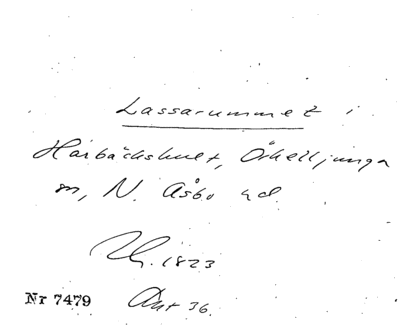 Lassarummet i
Hårbäckshult, Örkelljunga
sn, N. Åsbo hd.
1823
Nr 7479 Ant 36.